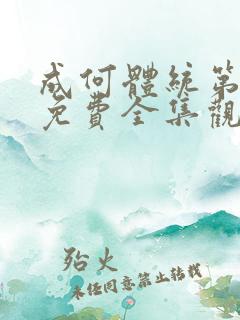 成何體統第
免費全集觀
殆火
未經同意禁止轉載